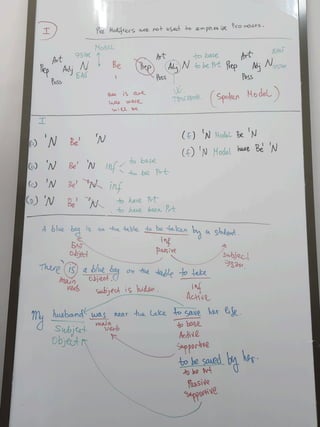 I Pre Modifiers are not used to emphasise Pronouns.
Model
Art Art Art
Prep Adj N Be Prep Adj N to base Prep Adj N
Poss Poss to be Prt Poss
am is are
was were
(Spoken Model)
I
'N Be' 'N (E) 'N Model Be 'N
'N Model have Be' 'N
'N Be' 'N inf to base
to be Prt
'N Be' 'N inf
'N Be' 'N to have Prt
to have been Prt
A blue bag is on the table to be taken by a student
inf
passive
subject
There is a blue bag on the table to take
main object inf
verb subject is hidden. Active
My husband was near the Lake to save her life.
Subject main to base
Object verb Active
Supportive
to be saved by her.
to be Prt
Passive
Supportive